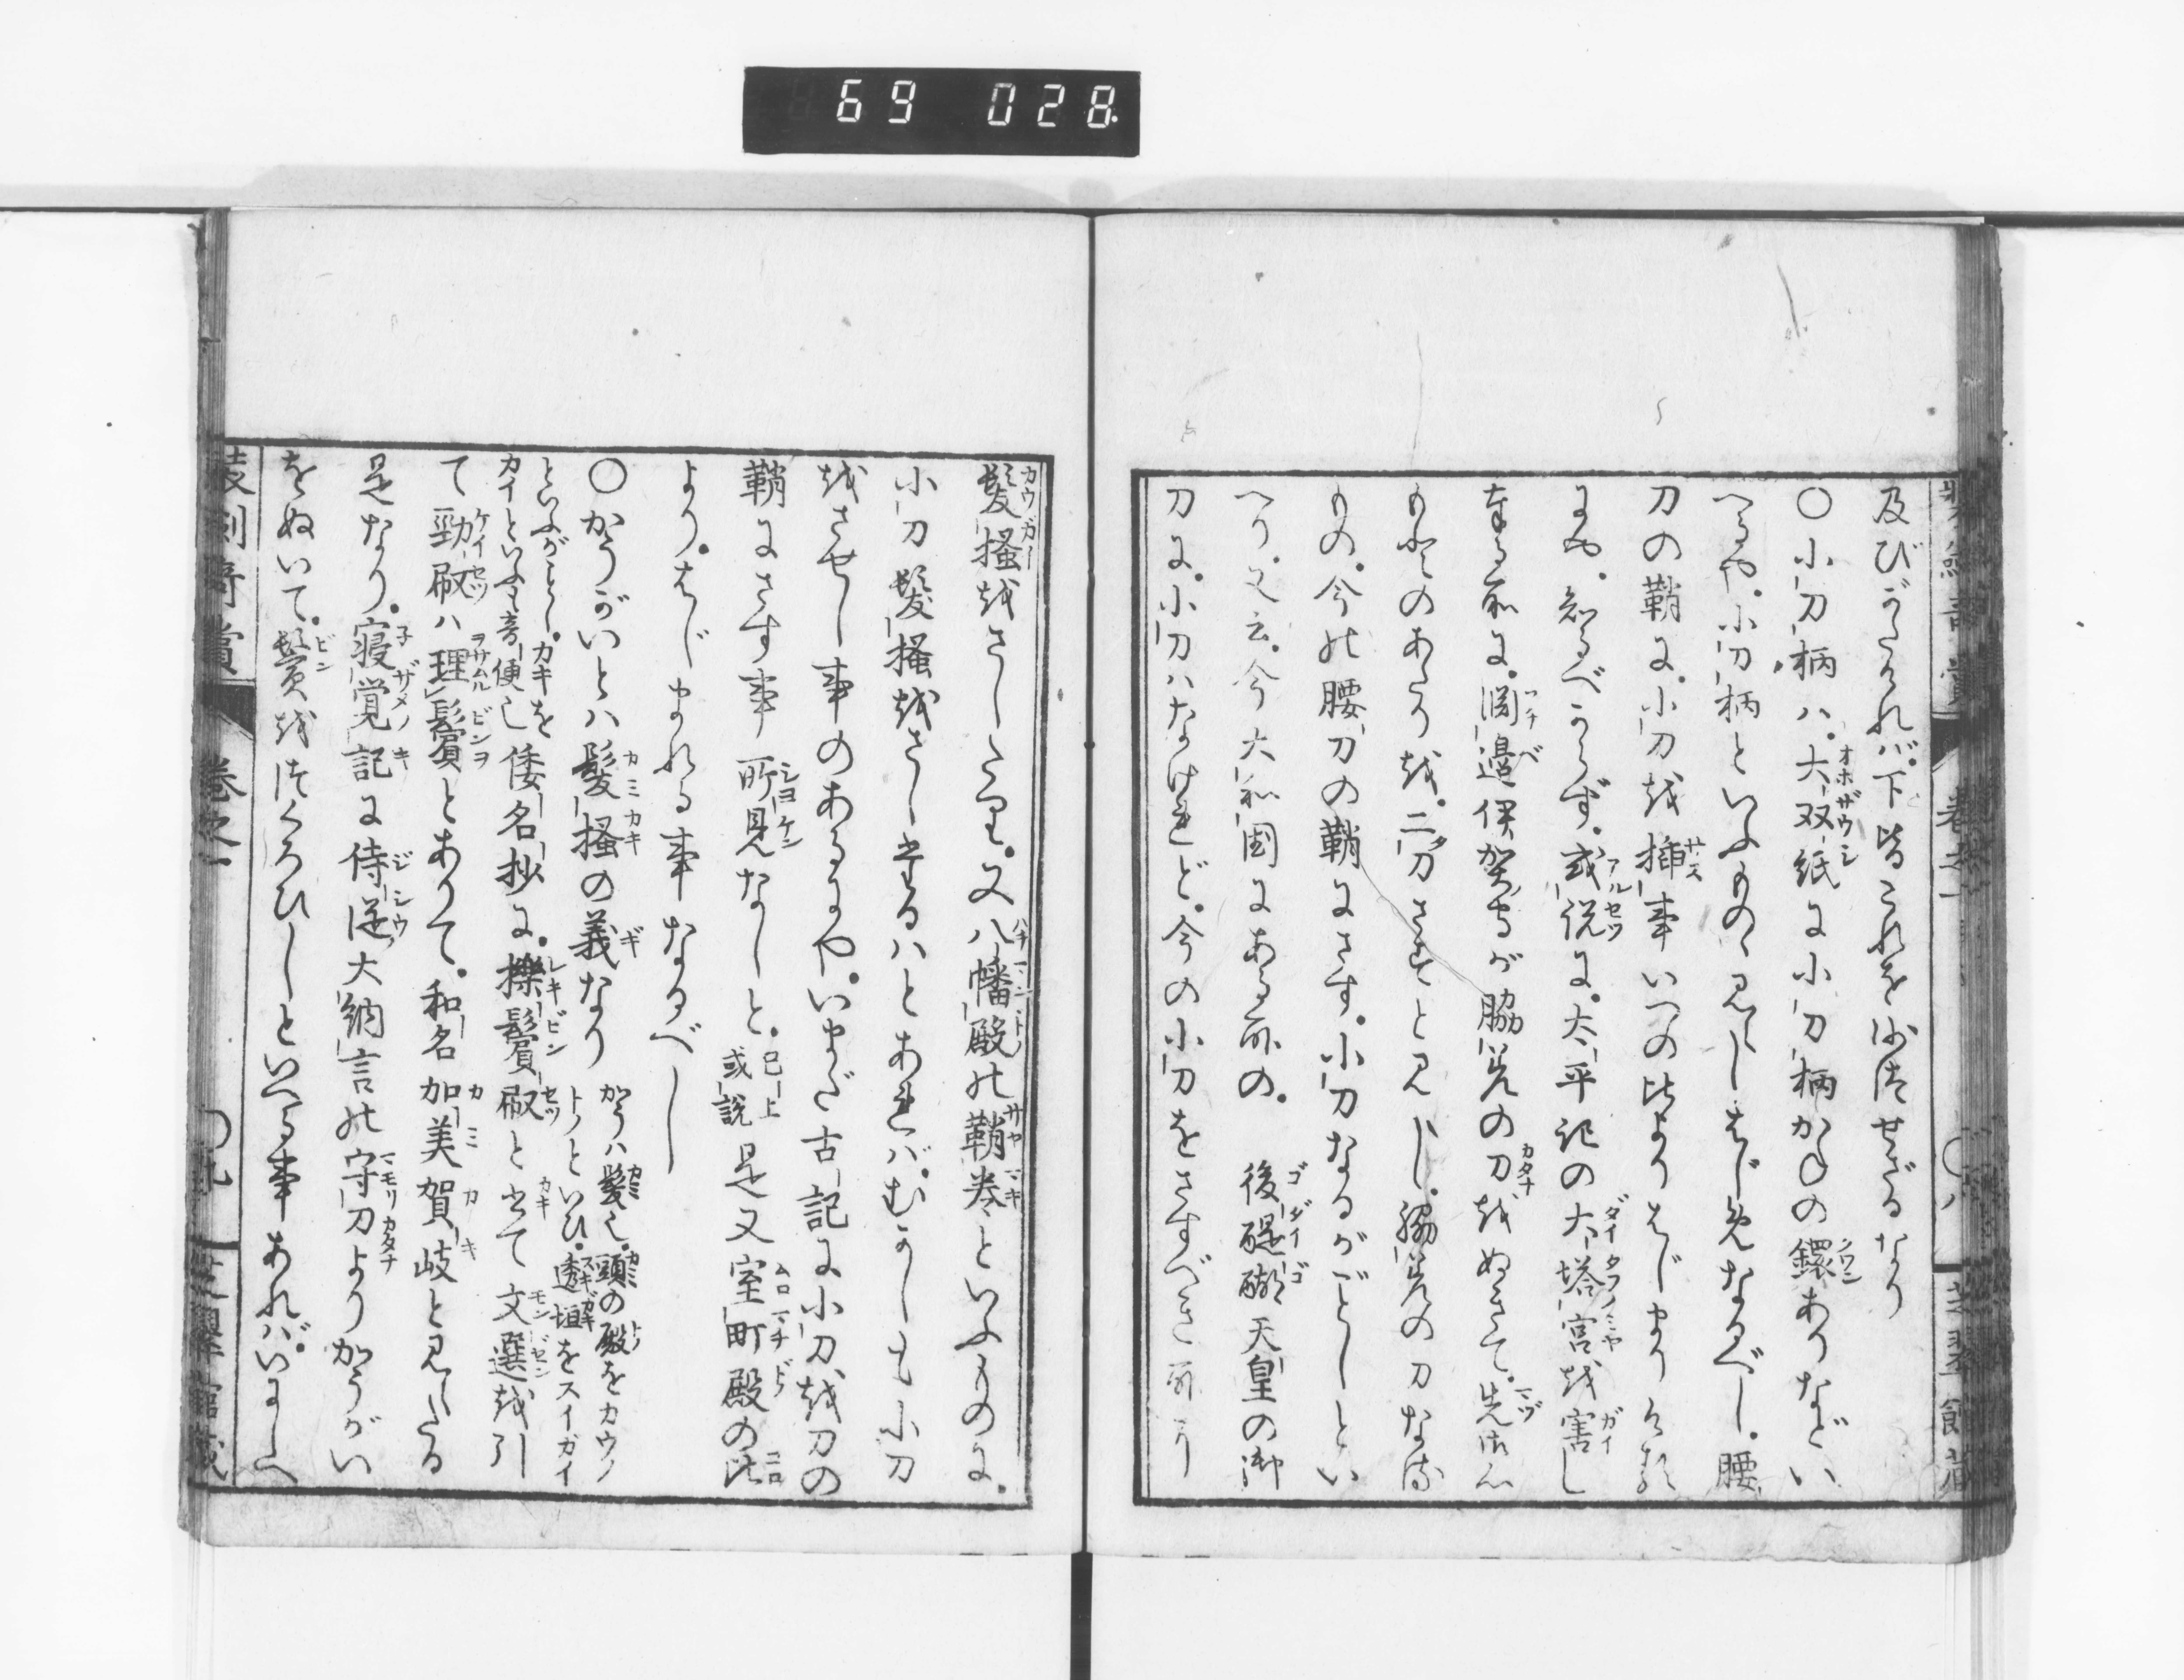 69 028
及びがたけれバ。下皆これを沙汰せざるなり
〇小刀柄ハ。大双紙に小刀柄かねの鐶ありなどい
へるや。小刀柄といふものゝ見へしはじめなるべし。腰
刀の鞘に。小刀越挿事いつの比よりはじまり
にや。知るべからず。或説に。太平記の大塔宮越害し
奉る所に。渕邊伊賀守が脇差の刀越ぬきて。先
のあたり越。二刀さすと見へし。脇差の刀な
もの。今の腰刀の鞘にさす。小刀なるがごとしとい
へり。又云。今大和国にある所の。後醍醐天皇の御
刀に。小刀ハなけれど。今の小刀をさすべき所あり
髪掻越さしたり。又八幡殿の鞘巻といふものに。
小刀髪掻越さしたるハとあれバ。むかしも小刀
越させし事のあるにや。いまだ古記に小刀越刀の
鞘にさす事所見なしと。已上或説是又室町殿の比
より。はじまれる事なるべし
〇かうがいとハ髪掻の義なり かうハ髪也。頭の殿をカウノ
トノといひ。透垣をスイガイ
といふがごとし。カキを
カイといふハ音便也倭名抄に。擽鬢刷と出て文選越引
て勁刷ハ理鬢とありて。和名加美賀岐と見へたる
是なり。寝覚記に侍従大納言の守刀よりかうがい
をぬいて。鬢越つくろひしといへる事あれバ。いにしへ
装劍奇賞 巻之一 〇九